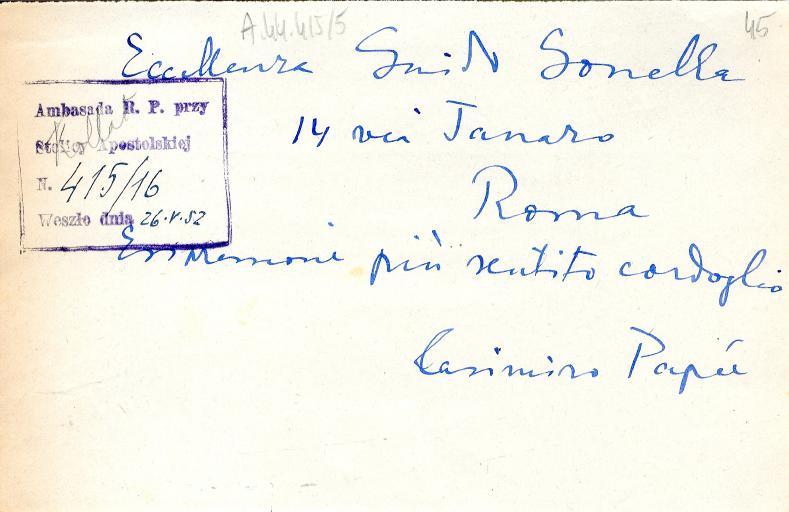 A.44.415/5
45
Eccellenza Guido Gonella
14 via Tanaro
Roma
Ambasada R. P. przy
Stolicy Apostolskiej
N. 415/16
Weszło dnia 26.V.52
Espressione più sentito cordoglio
Casimiro Papée